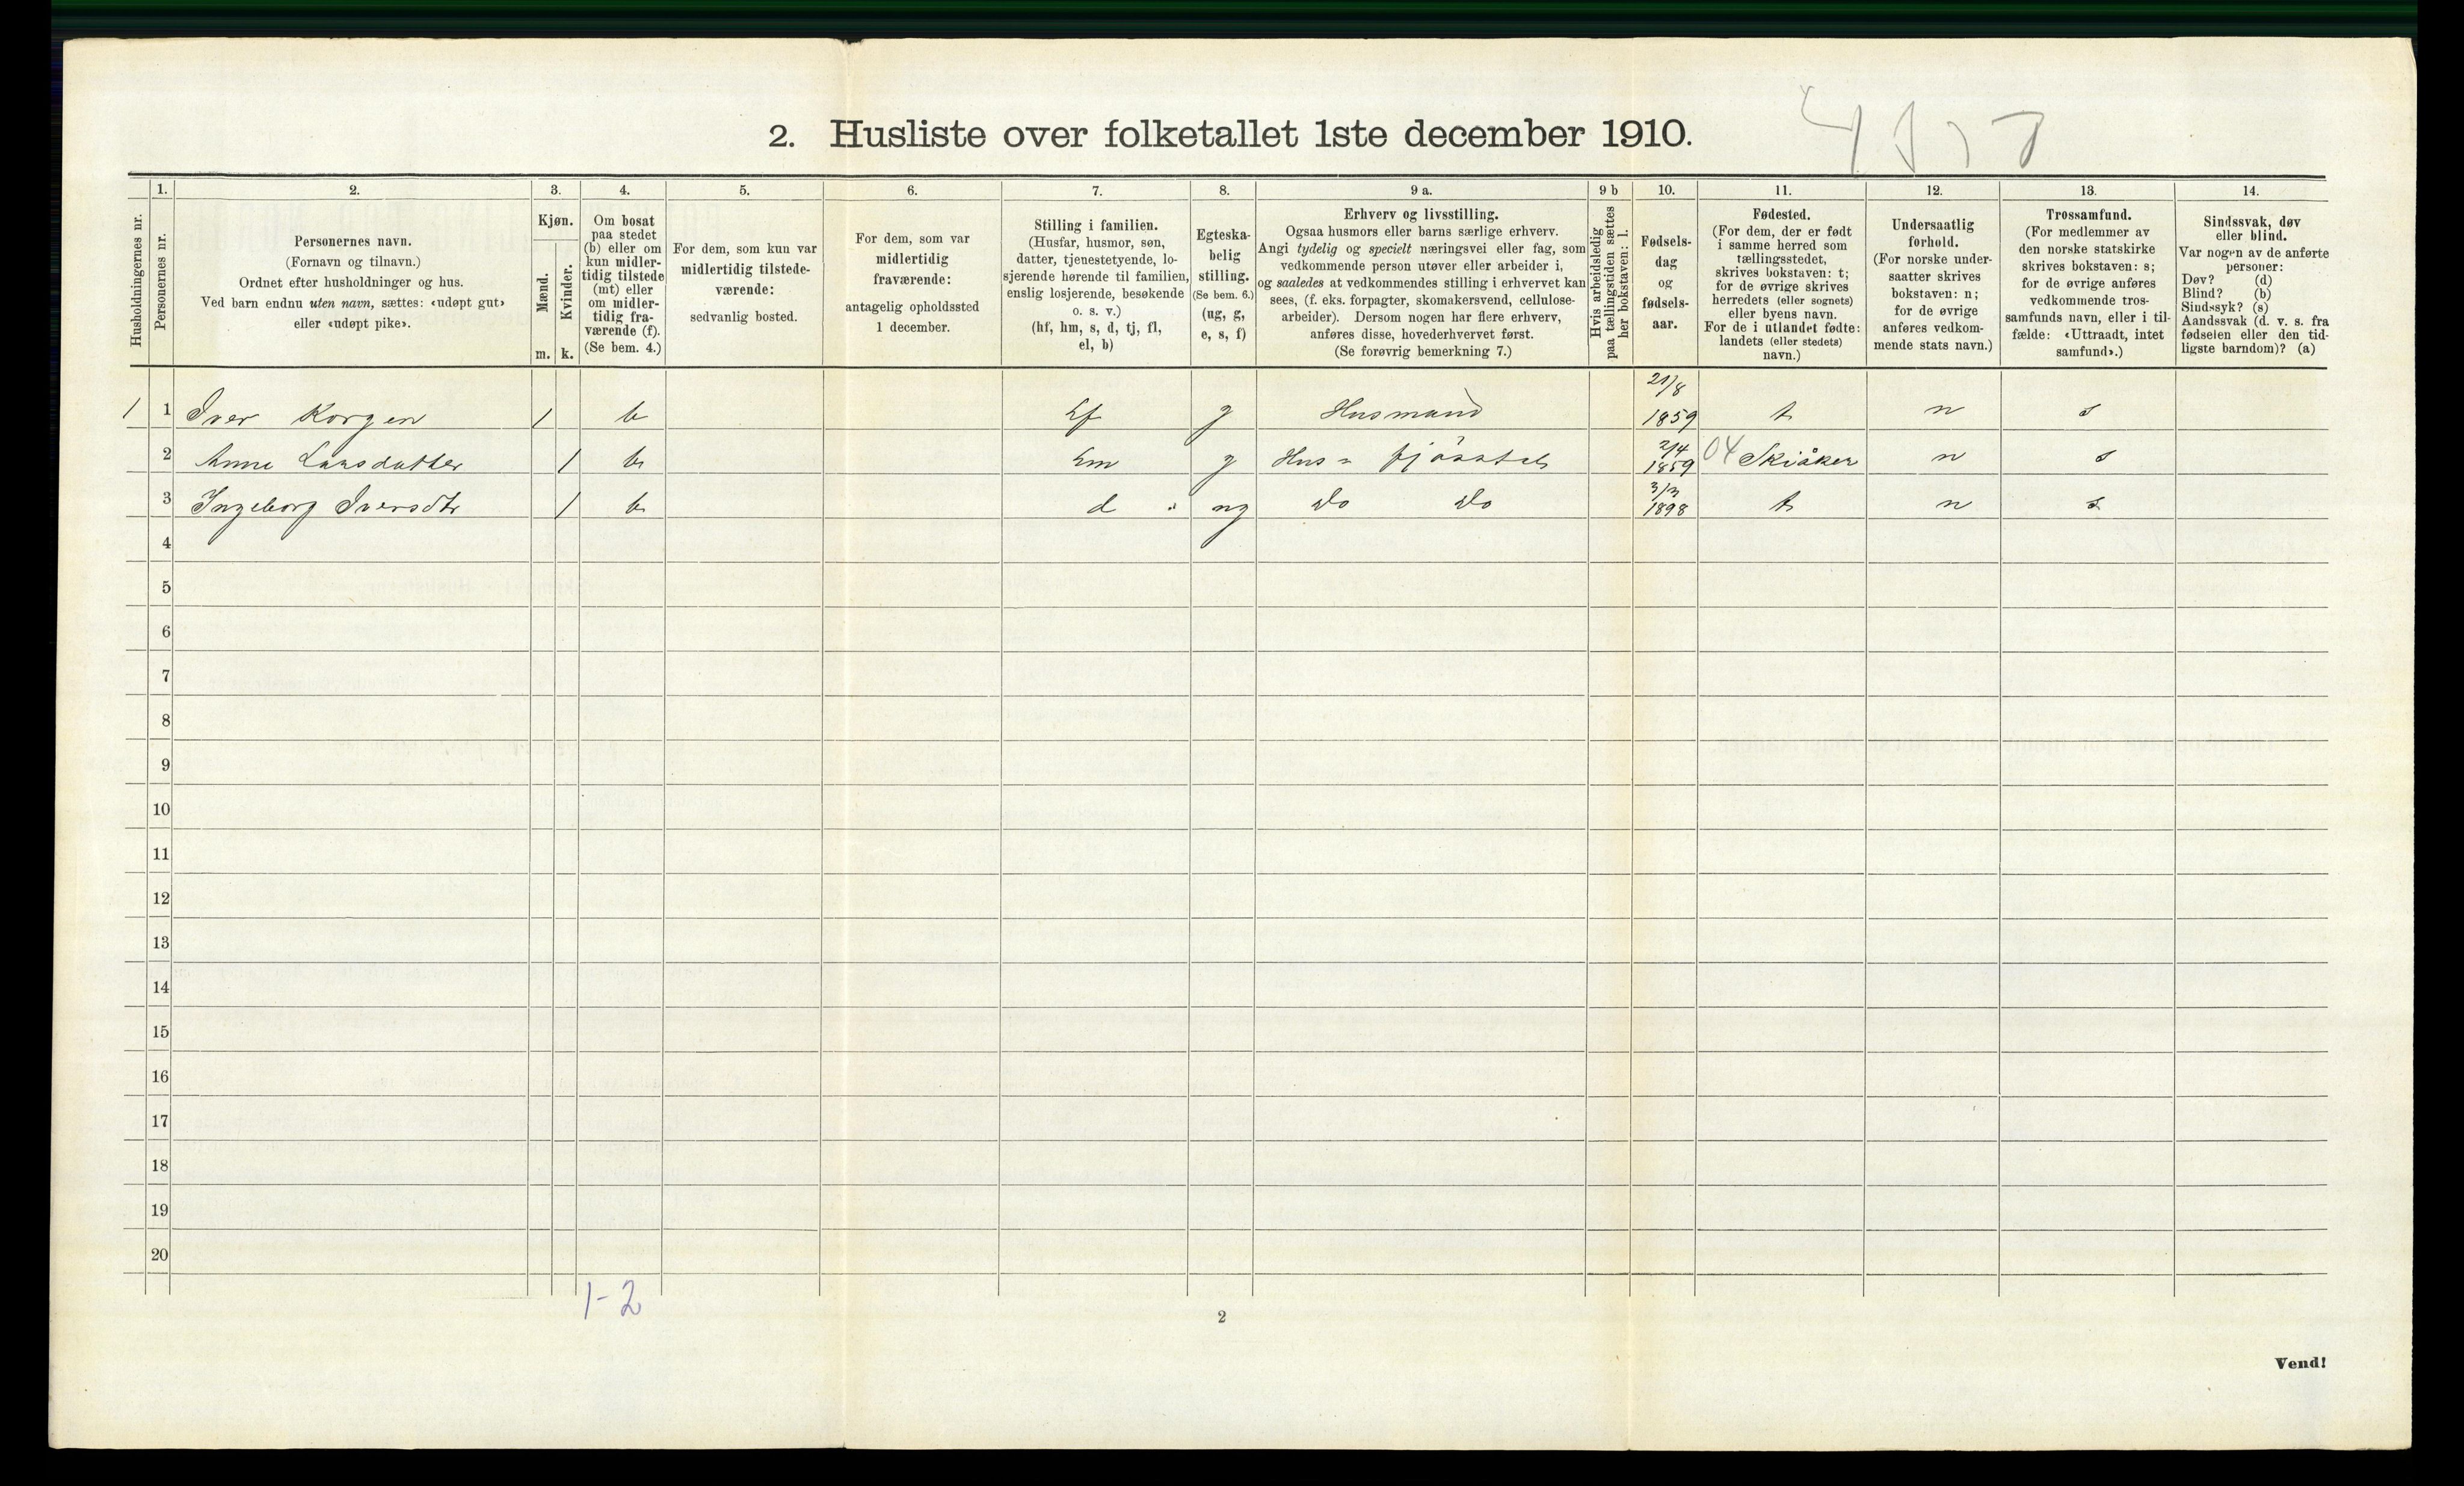 2. Husliste over folketallet 1ste december 1910.
Husholdningernes nr.
1.
Personernes nr.
2.
Personernes navn.
(Fornavn og tilnavn.)
Ordnet efter husholdninger og hus.
Ved barn endnu uten navn, sættes: «udøpt gut»
eller «udøpt pike».
3.
Kjøn.
Mænd.
m.
Kvinder.
k.
4.
Om bosat
paa stedet
(b) eller om
kun midler-
tidig tilstede
(mt) eller
om midler-
tidig fra-
værende (f).
(Se bem. 4.)
5.
For dem, som kun var
midlertidig tilstede-
værende:
sedvanlig bosted.
6.
For dem, som var
midlertidig
fraværende:
antagelig opholdssted
1 december.
7.
Stilling i familien.
(Husfar, husmor, søn,
datter, tjenestetyende, lo-
sjerende hørende til familien,
enslig losjerende, besøkende
o. s. v.)
(hf, hm, s, d, tj, fl,
el, b)
8.
Egteska-
belig
stilling.
(Se bem. 6.)
(ug, g,
e, s, f)
9 a.
Erhverv og livsstilling.
Ogsaa husmors eller barns særlige erhverv.
Angi tydelig og specielt næringsvei eller fag, som
vedkommende person utøver eller arbeider i,
og saaledes at vedkommendes stilling i erhvervet kan
sees, (f. eks. forpagter, skomakersvend, cellulose-
arbeider). Dersom nogen har flere erhverv,
anføres disse, hovederhvervet først.
(Se forøvrig bemerkning 7.)
9 b
Hvis arbeidsledig
paa tællingstiden sættes
her bokstaven: l.
10.
Fødsels-
dag
og
fødsels-
aar.
11.
Fødested.
(For dem, der er født
i samme herred som
tællingsstedet,
skrives bokstaven: t;
for de øvrige skrives
herredets (eller sognets)
eller byens navn.
For de i utlandet fødte:
landets (eller stedets)
navn.)
12.
Undersaatlig
forhold.
(For norske under-
saatter skrives
bokstaven: n;
for de øvrige
anføres vedkom-
mende stats navn.)
13.
Trossamfund.
(For medlemmer av
den norske statskirke
skrives bokstaven: s;
for de øvrige anføres
vedkommende tros-
samfunds navn, eller i til-
fælde: «Uttraadt, intet
samfund».)
14.
Sindssvak, døv
eller blind.
Var nogen av de anførte
personer:
Døv? (d)
Blind? (b)
Sindssyk? (s)
Aandssvak (d. v. s. fra
fødselen eller den tid-
ligste barndom)? (a)
1 1 Iver Korgen 1 b g Husmand 21/8 1859 t n s
2 Anne Larsdatter 1 b g Hus = fjösstel 2/4 1859 04 Skiåker n s
3 Ingeborg Iversdtr 1 b d ug Do Do 3/3 1898 t n s
4
5
6
7
8
9
10
11
12
13
14
15
16
17
18
19
20
1-2
2
Vend!